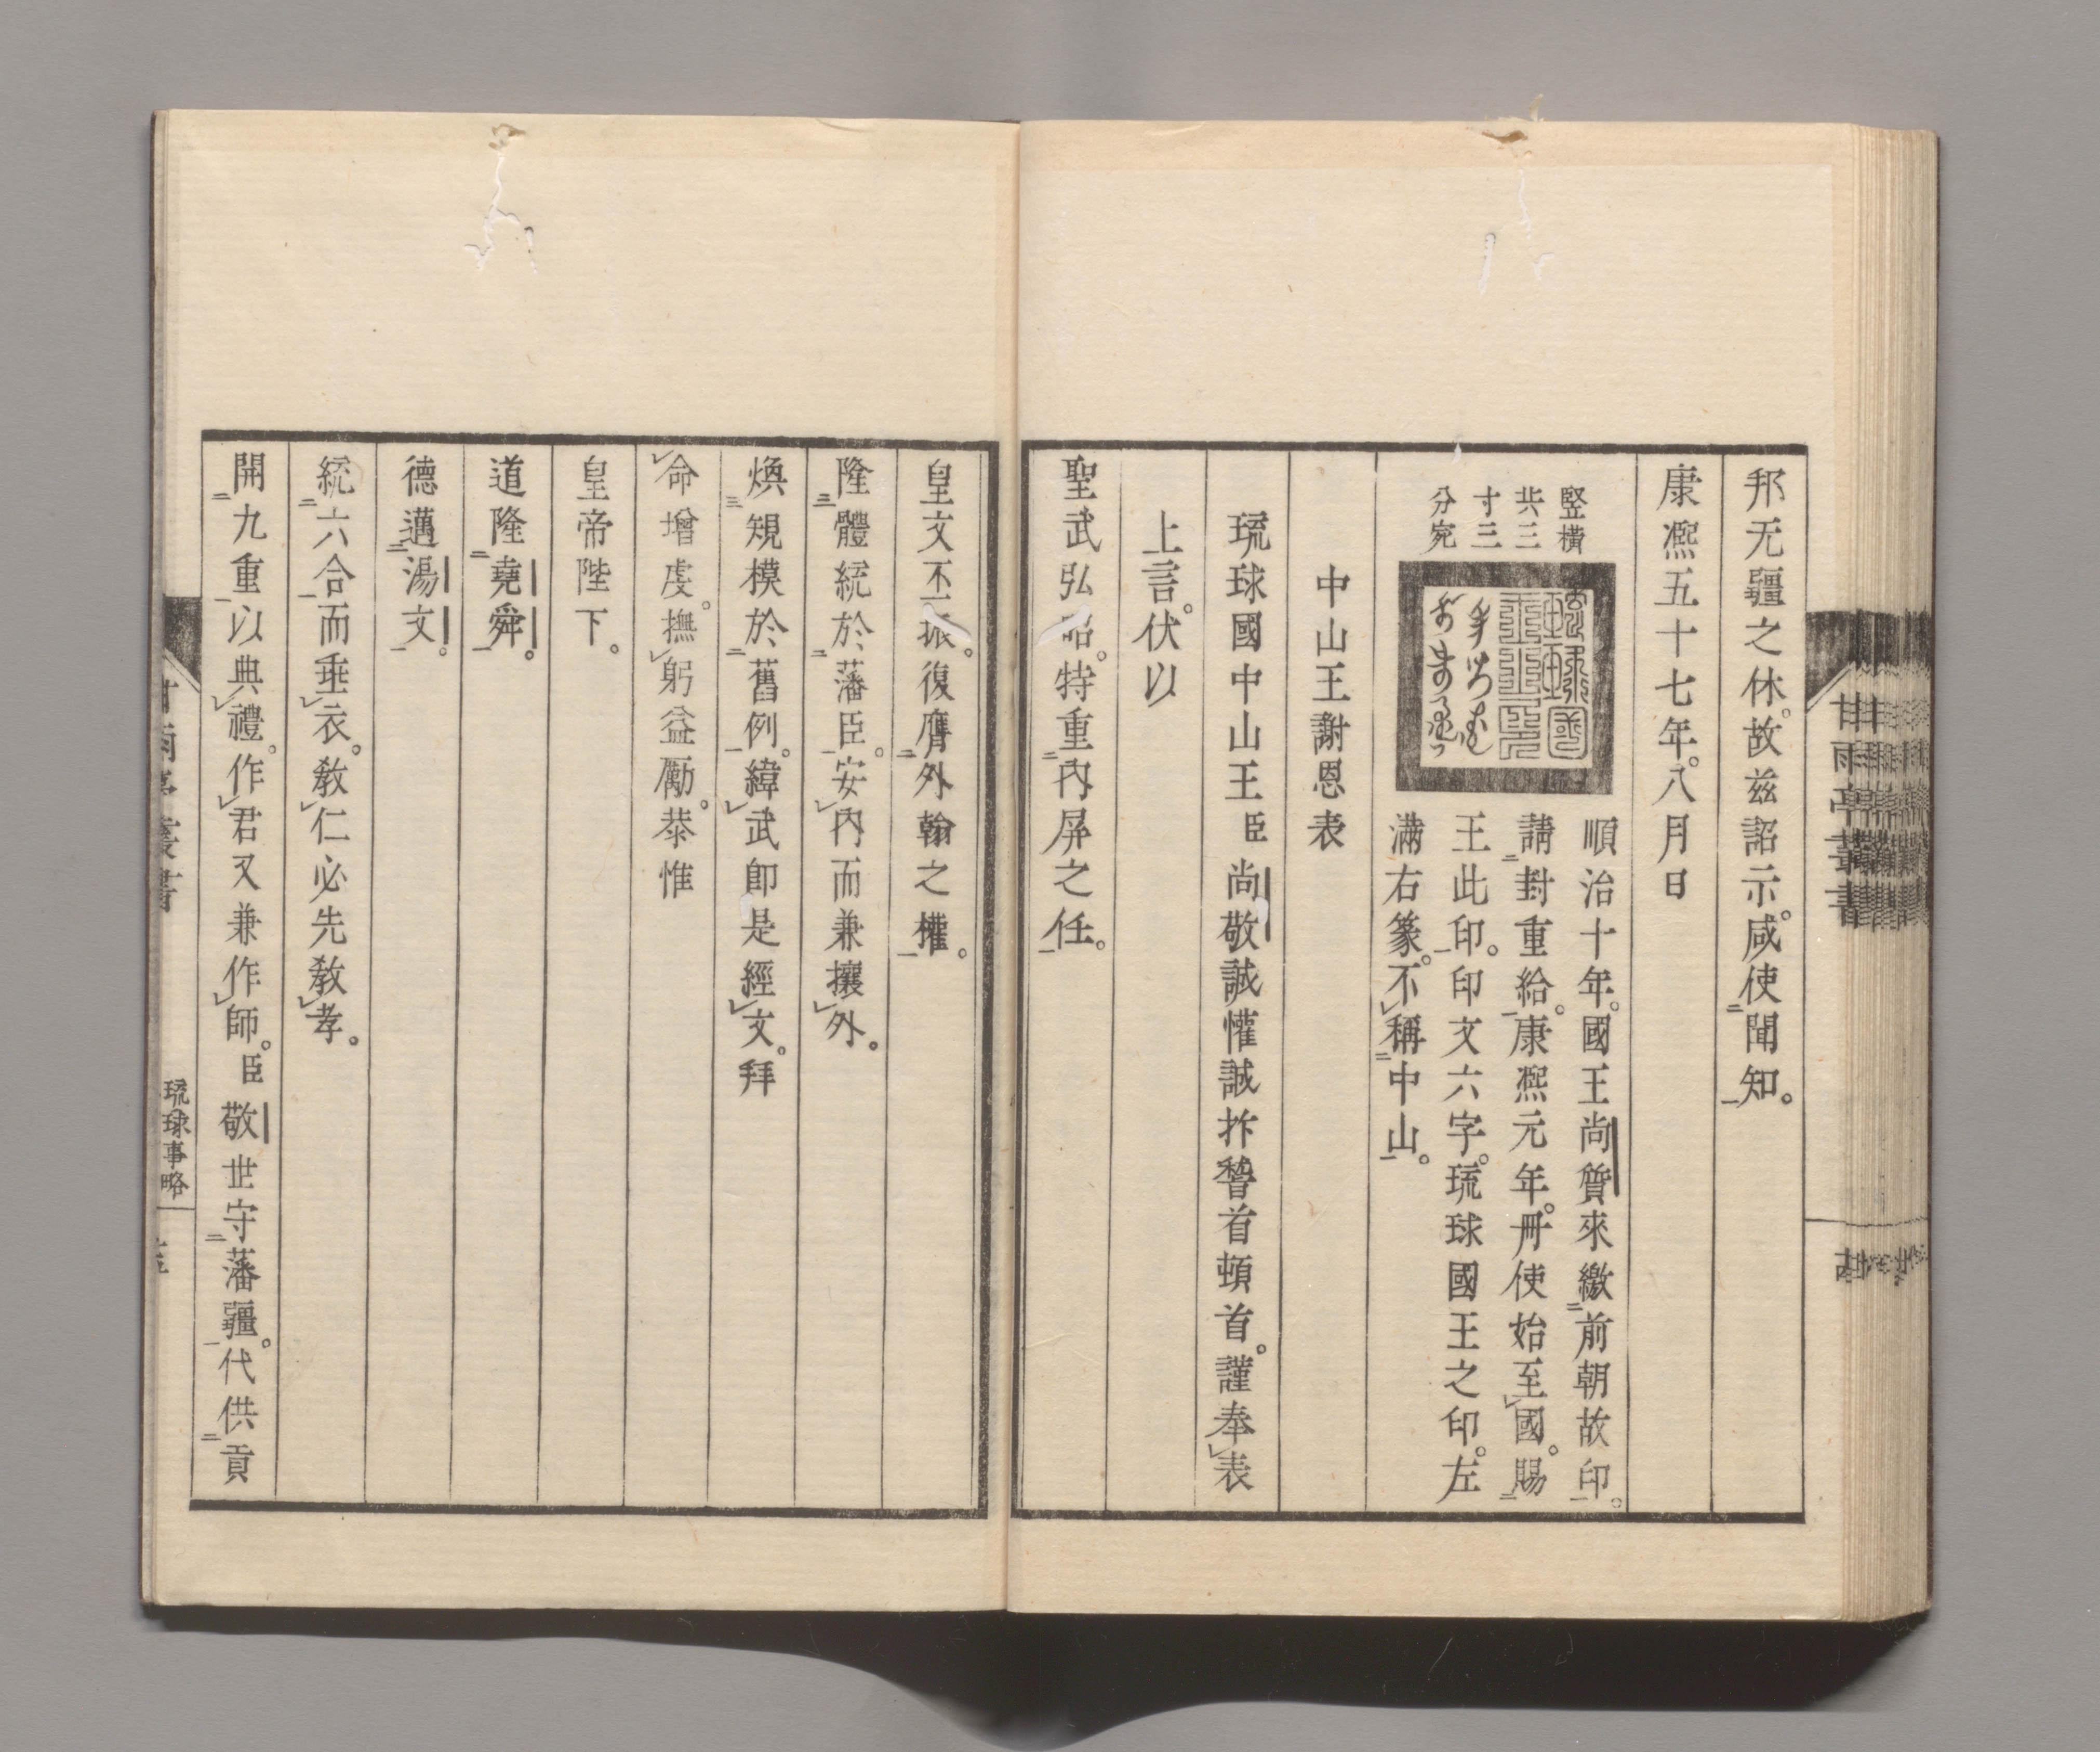 邦无疆之休。故茲詔示。咸使聞知。
康凞五十七年。八月日
竪橫
共三
寸三
分宛
琉球國
王之印
順治十年。國王尚質來繳前朝故印。
請封重給。康凞元年。冊使始至國。賜
王此印。印文六字。琉球國王之印。左
滿右篆。不稱中山。
中山王謝恩表
琉球國中山王臣尚敬誠懽誠抃稽首頓首。謹奉表
上言。伏以
聖武弘昭。特重內屏之任。
皇文丕振。復膺外翰之權。
隆體統於藩臣。安內而兼攘外。
煥規模於舊例。緯武卽是經文。拜
命增虔。撫躬益勵。恭惟
皇帝陛下。
道隆堯舜。
德邁湯文。
統六合而垂衣。敎仁必先敎孝。
開九重以典禮。作君又兼作師。臣敬世守藩疆。代供貢
甘雨亭叢書
甘雨亭叢書
琉球事略